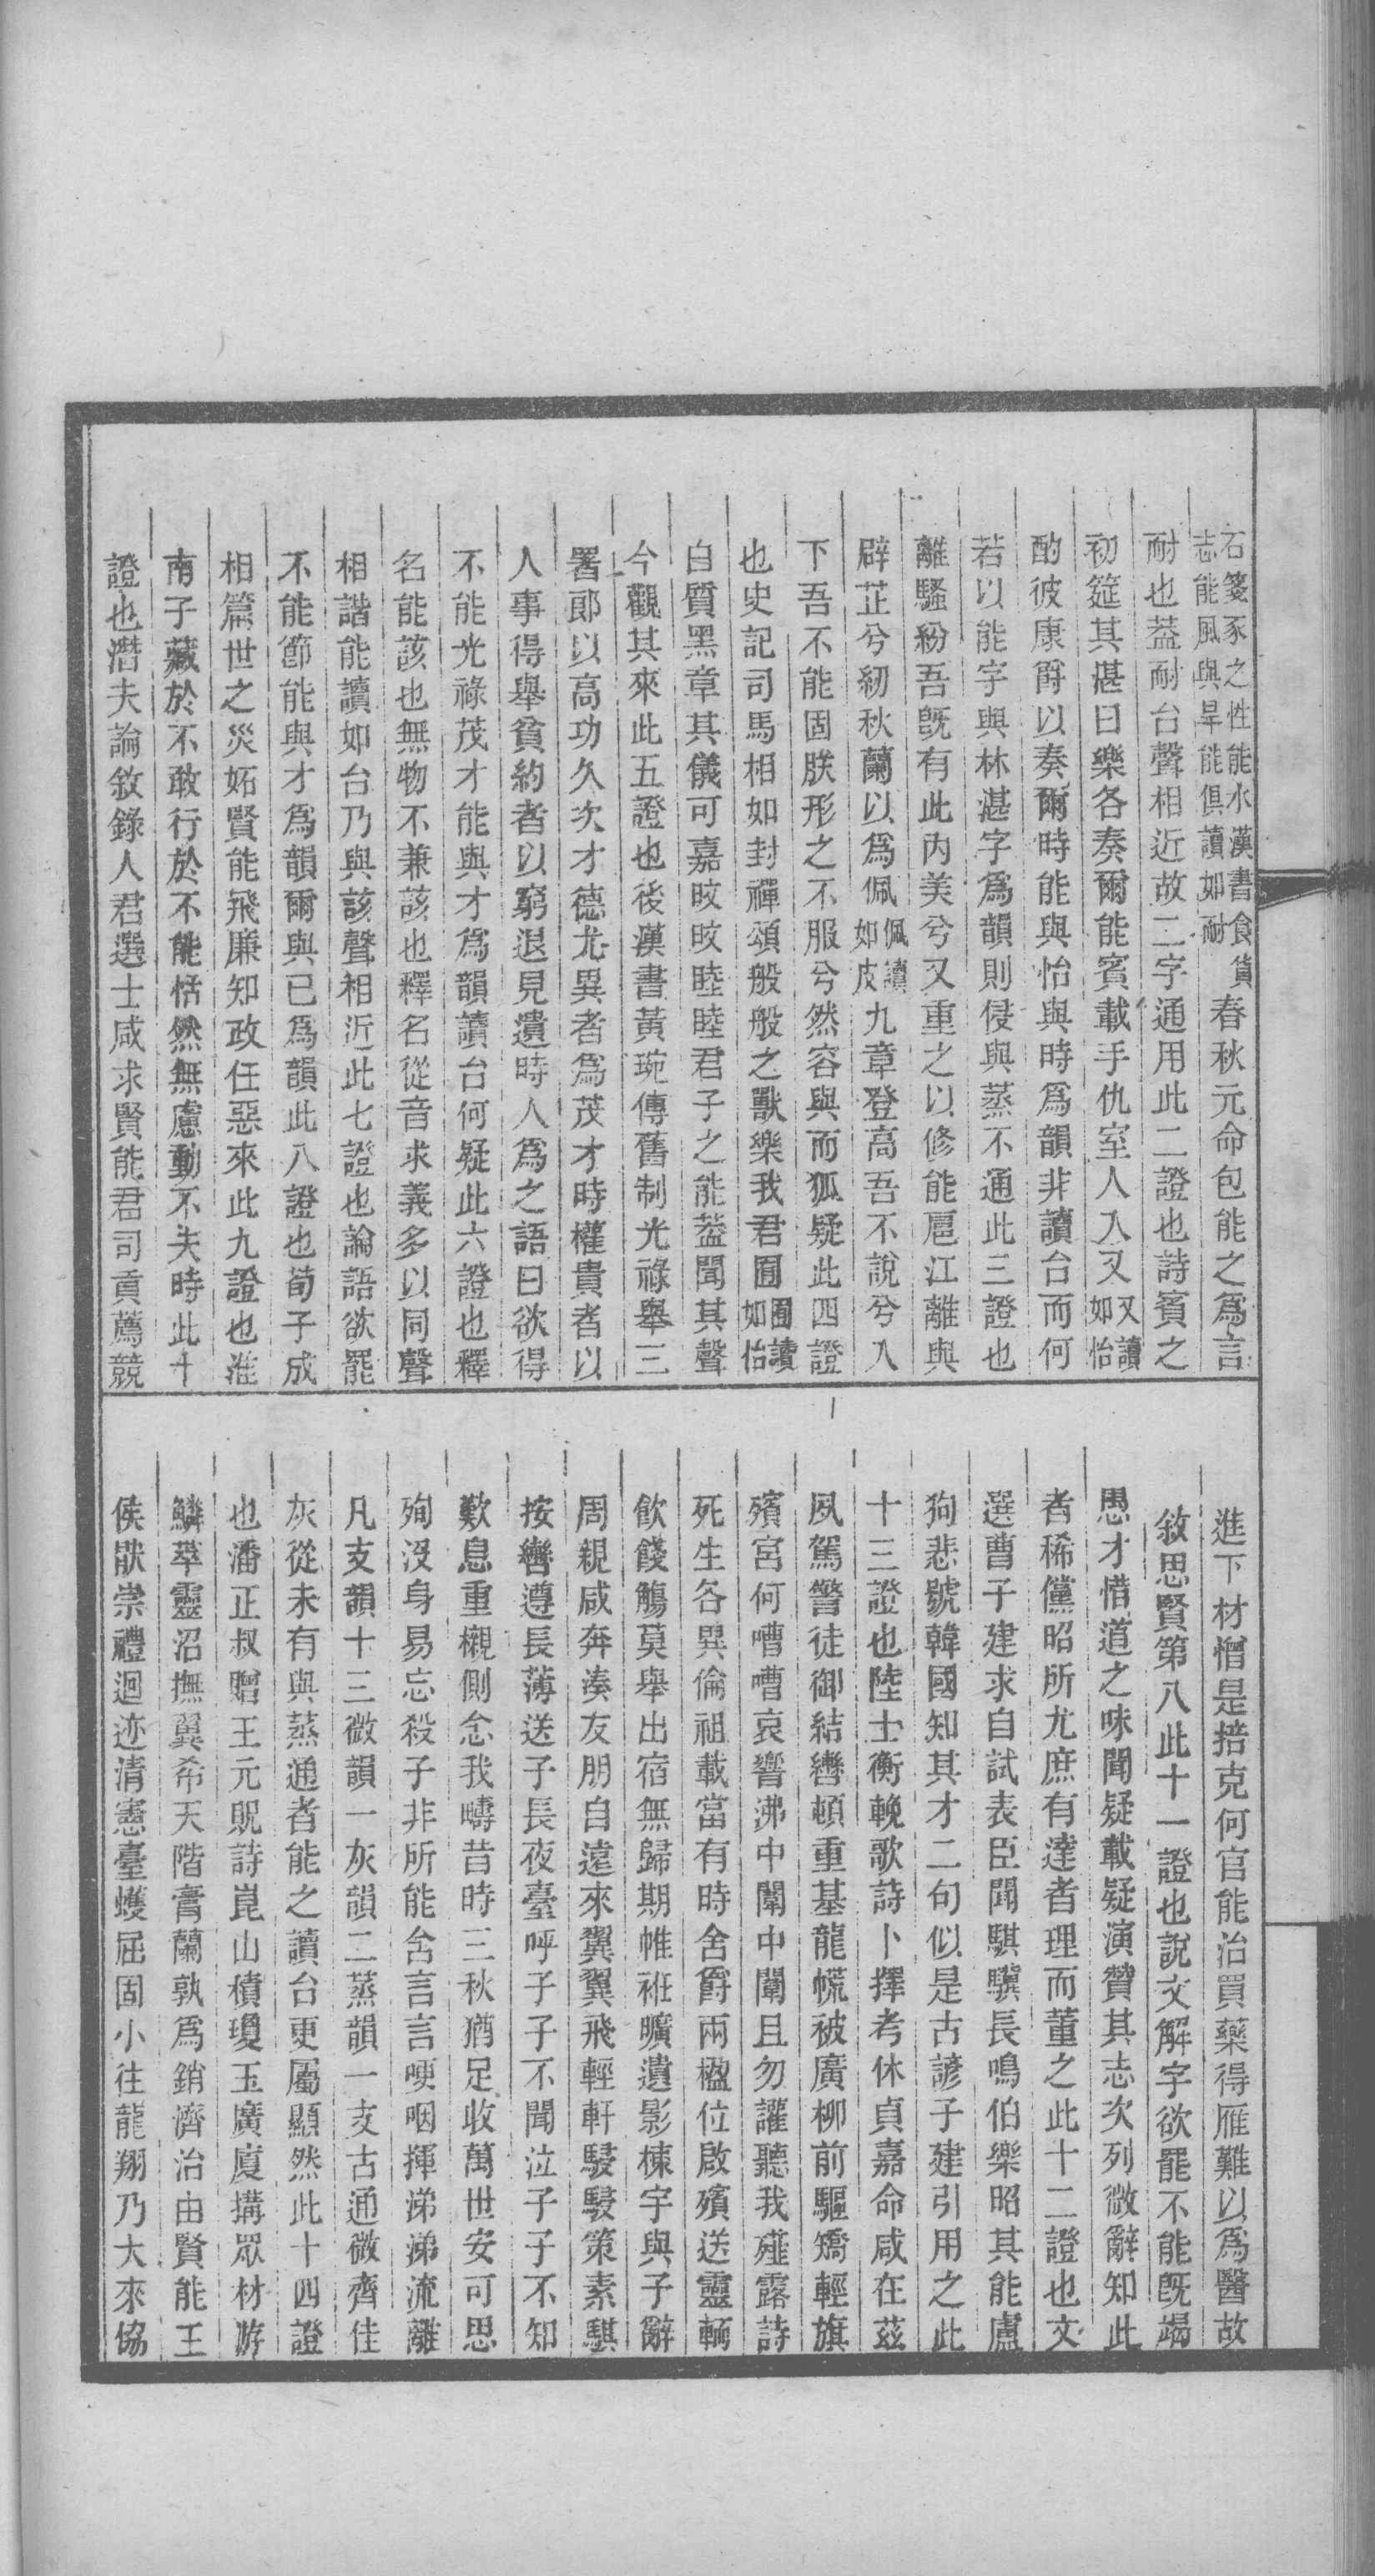 石箋豕之性能水漢書食貨
志能風與旱能俱讀如耐
春秋元命包能之爲言
耐也葢耐台聲相近故二字通用此二證也詩賓之
初筵其湛曰樂各奏爾能賓載手仇室人入又
又讀
如怡
酌彼康爵以奏爾時能與怡與時爲韻非讀台而何
若以能字與林湛字爲韻則侵與蒸不通此三證也
離騷紛吾既有此內美兮又重之以修能扈江離與
辟芷兮紉秋蘭以爲佩
佩讀
如皮
九章登高吾不說兮入
下吾不能固朕形之不服兮然容與而狐疑此四證
也史記司馬相如封禪頌般般之獸樂我君囿
囿讀
如怡
白質黑章其儀可嘉旼旼睦睦君子之能葢聞其聲
今觀其來此五證也後漢書黃琬傳舊制光祿舉三
署郎以高功久次才德尤異者爲茂才時權貴者以
人事得舉貧約者以窮退見遺時人爲之語曰欲得
不能光祿茂才能與才爲韻讀台何疑此六證也釋
名能該也無物不兼該也釋名從音求義多以同聲
相諧能讀如台乃與該聲相近此七證也論語欲罷
不能節能與才爲韻爾與已爲韻此八證也荀子成
相篇世之災妬賢能飛廉知政任惡來此九證也淮
南子藏於不敢行於不能恬然無慮動不失時此十
證也潛夫論敘錄人君選士咸求賢能君司貢薦競
進下材憎是掊克何官能治買藥得雁難以爲醫故
敘思賢第八此十一證也說文解字欲罷不能既竭
愚才惜道之味聞疑載疑演贊其志次列微辭知此
者稀儻昭所尤庶有達者理而董之此十二證也文
選曹子建求自試表臣聞騏驥長鳴伯樂昭其能盧
狗悲號韓國知其才二句似是古諺子建引用之此
十三證也陸士衡輓歌詩卜擇考休貞嘉命咸在茲
夙駕警徒御結轡頓重基龍㡆被廣柳前驅矯輕旗
殯宮何嘈嘈哀響沸中闈中闈且勿讙聽我薤露詩
死生各異倫祖載當有時舍爵兩楹位啟殯送靈輀
飲餞觴莫舉出宿無歸期帷袵曠遺影棟宇與子辭
周親咸奔湊友朋自遠來翼翼飛輕軒駸駸策素騏
按轡遵長薄送子長夜臺呼子子不聞泣子子不知
歎息重櫬側念我疇昔時三秋猶足收萬世安可思
殉沒身易忘殺子非所能含言言哽咽揮涕涕流離
凡支韻十三微韻一灰韻二蒸韻一支古通微齊佳
灰從未有與蒸通者能之讀台更屬顯然此十四證
也潘正叔贈王元貺詩崑山積瓊玉廣廈搆眾材游
鱗萃靈沼撫翼希天階膏蘭孰爲銷濟治由賢能王
侯猒崇禮迴迹清憲臺蠖屈固小往龍翔乃大來協